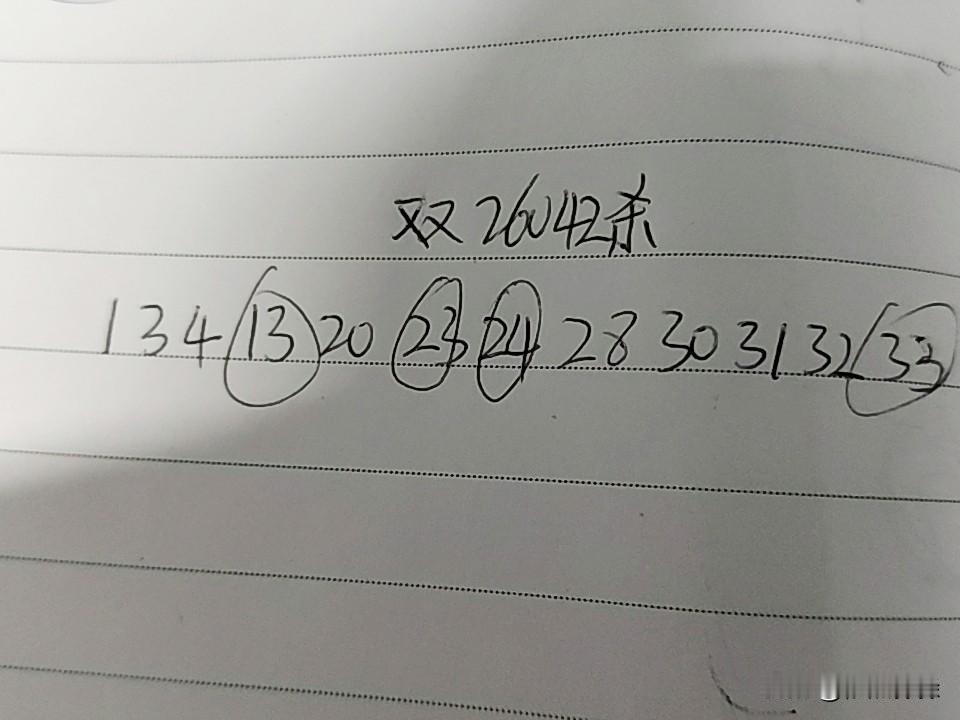 双26042杀
1 3 4 13 20 23 24 28 30 31 32 33